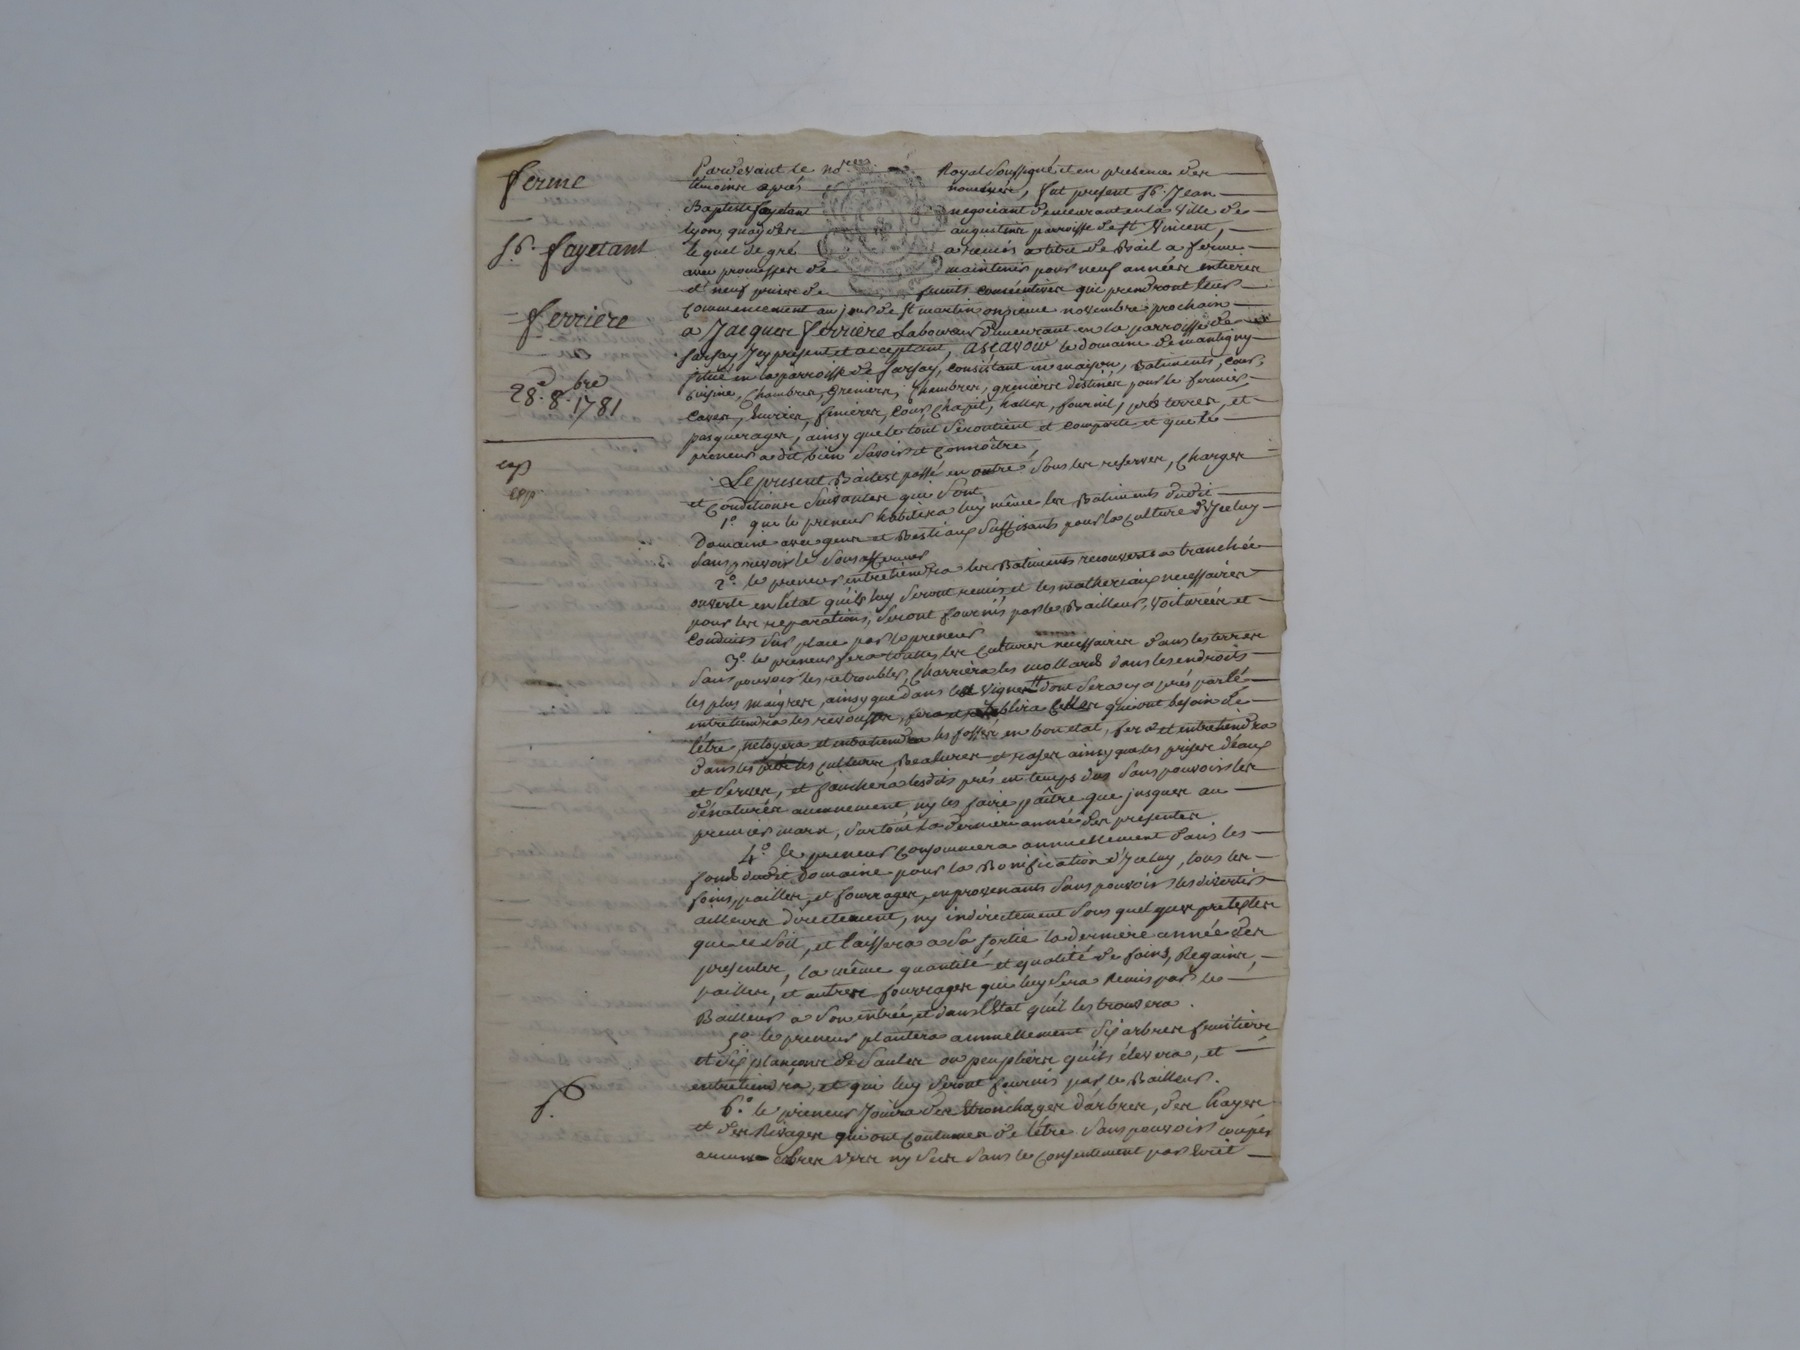 ferme
Sr. fayetant
ferriere
28e. 8bre. 1781
exp
Pardevant le nore. Royal Soussigné et en presence des
temoins après nommés, fut present Sr. Jean
Baptiste fayetant negociant demeurant en la Ville de
Lyon, quay des augustins parroisse de St Vincent,
lequel de gré a remis a titre de Bail a ferme
avec promesse de maintenir pour neuf années entieres
et neuf prises de fruits consécutives qui prendront leur
commencement au jour de St martin onzieme novembre prochain
a Jacques ferriere Laboureur demeurant en la parroisse de
Jarsay Icy présent et acceptant, ascavoir le domaine de mantigny
situé en la parroisse de Jarsay, consistant en maison, Batiments, cour,
cuisine, chambres, Greniers, chambres, greniers destinés pour le fermier
caves, Ecuries, fenieres, cour, chapit, halles, fournil, prés terres, et
pasquerages, ainsy que le tout s'éroutient et comporte et que le
preneur a dit bien savoir et connoître,
Le present Bail est passé en outre sous les reserves, charges
et conditions suivantes qui sont
1o. que le preneur habitera luy même les Batiments dudit
Domaine avec gens et Bestiaux suffisants pour la culture d'Iceluy
sans pouvoir le sousaffermer
2o. le preneur entretiendra les Batiments recouverts a tranchée
ouverte en l'etat qu'ils luy seront remis et les matheriaux necessaires
pour les reparations, seront fournis par le Bailleur, Voiturées et
conduits sur place par le preneur
3o. le preneur fera touttes les cultures necessaires dans les terres
sans pouvoir les retroubler, charriera les mollards dans les endroits
les plus maigres, ainsy que dans les vignes dont sera cy après parlé
entretiendra les revousses, fera et établira celles qui ont besoin de
l'être, netoyera et entretiendra les fosses en bon etat, fera et entretiendra
dans les prés les cultures Bealures et rases ainsy que les prises d'eaux
et serves, et fauchera lesdits prés en temps dus sans pouvoir les
dénaturer aucunement, ny les faire paître que jusques au
premier mars, surtout la derniere année des presentes
4o. le preneur consommera annuellement dans les
fonds dudit Domaine pour la Bonification d'Iceluy, tous les
foins, pailles, et fourrages, en provenants sans pouvoir les divertir
ailleurs directement, ny indirectement sous quelques pretextes
que ce soit, et laissera a sa sortie la derniere année des
presentes, la même quantité et qualité de foins, Regains,
pailles, et autres fourrages qui luy sera Remis par le
Bailleur a son entrée, et dans l'Etat qu'il les trouvera.
5o. le preneur plantera annuellement six arbres fruitiers
et six plançons de saules ou peupliers qu'ils élevera, et
entretiendra, et qui luy seront fournis par le Bailleur.
6o. le preneur Jouira des tronchages d'arbres, des hayes
et des Rivages qui ont coutumes de l'être sans pouvoir couper
aucuns arbres Vers ny secs sans le consentement par Ecrit